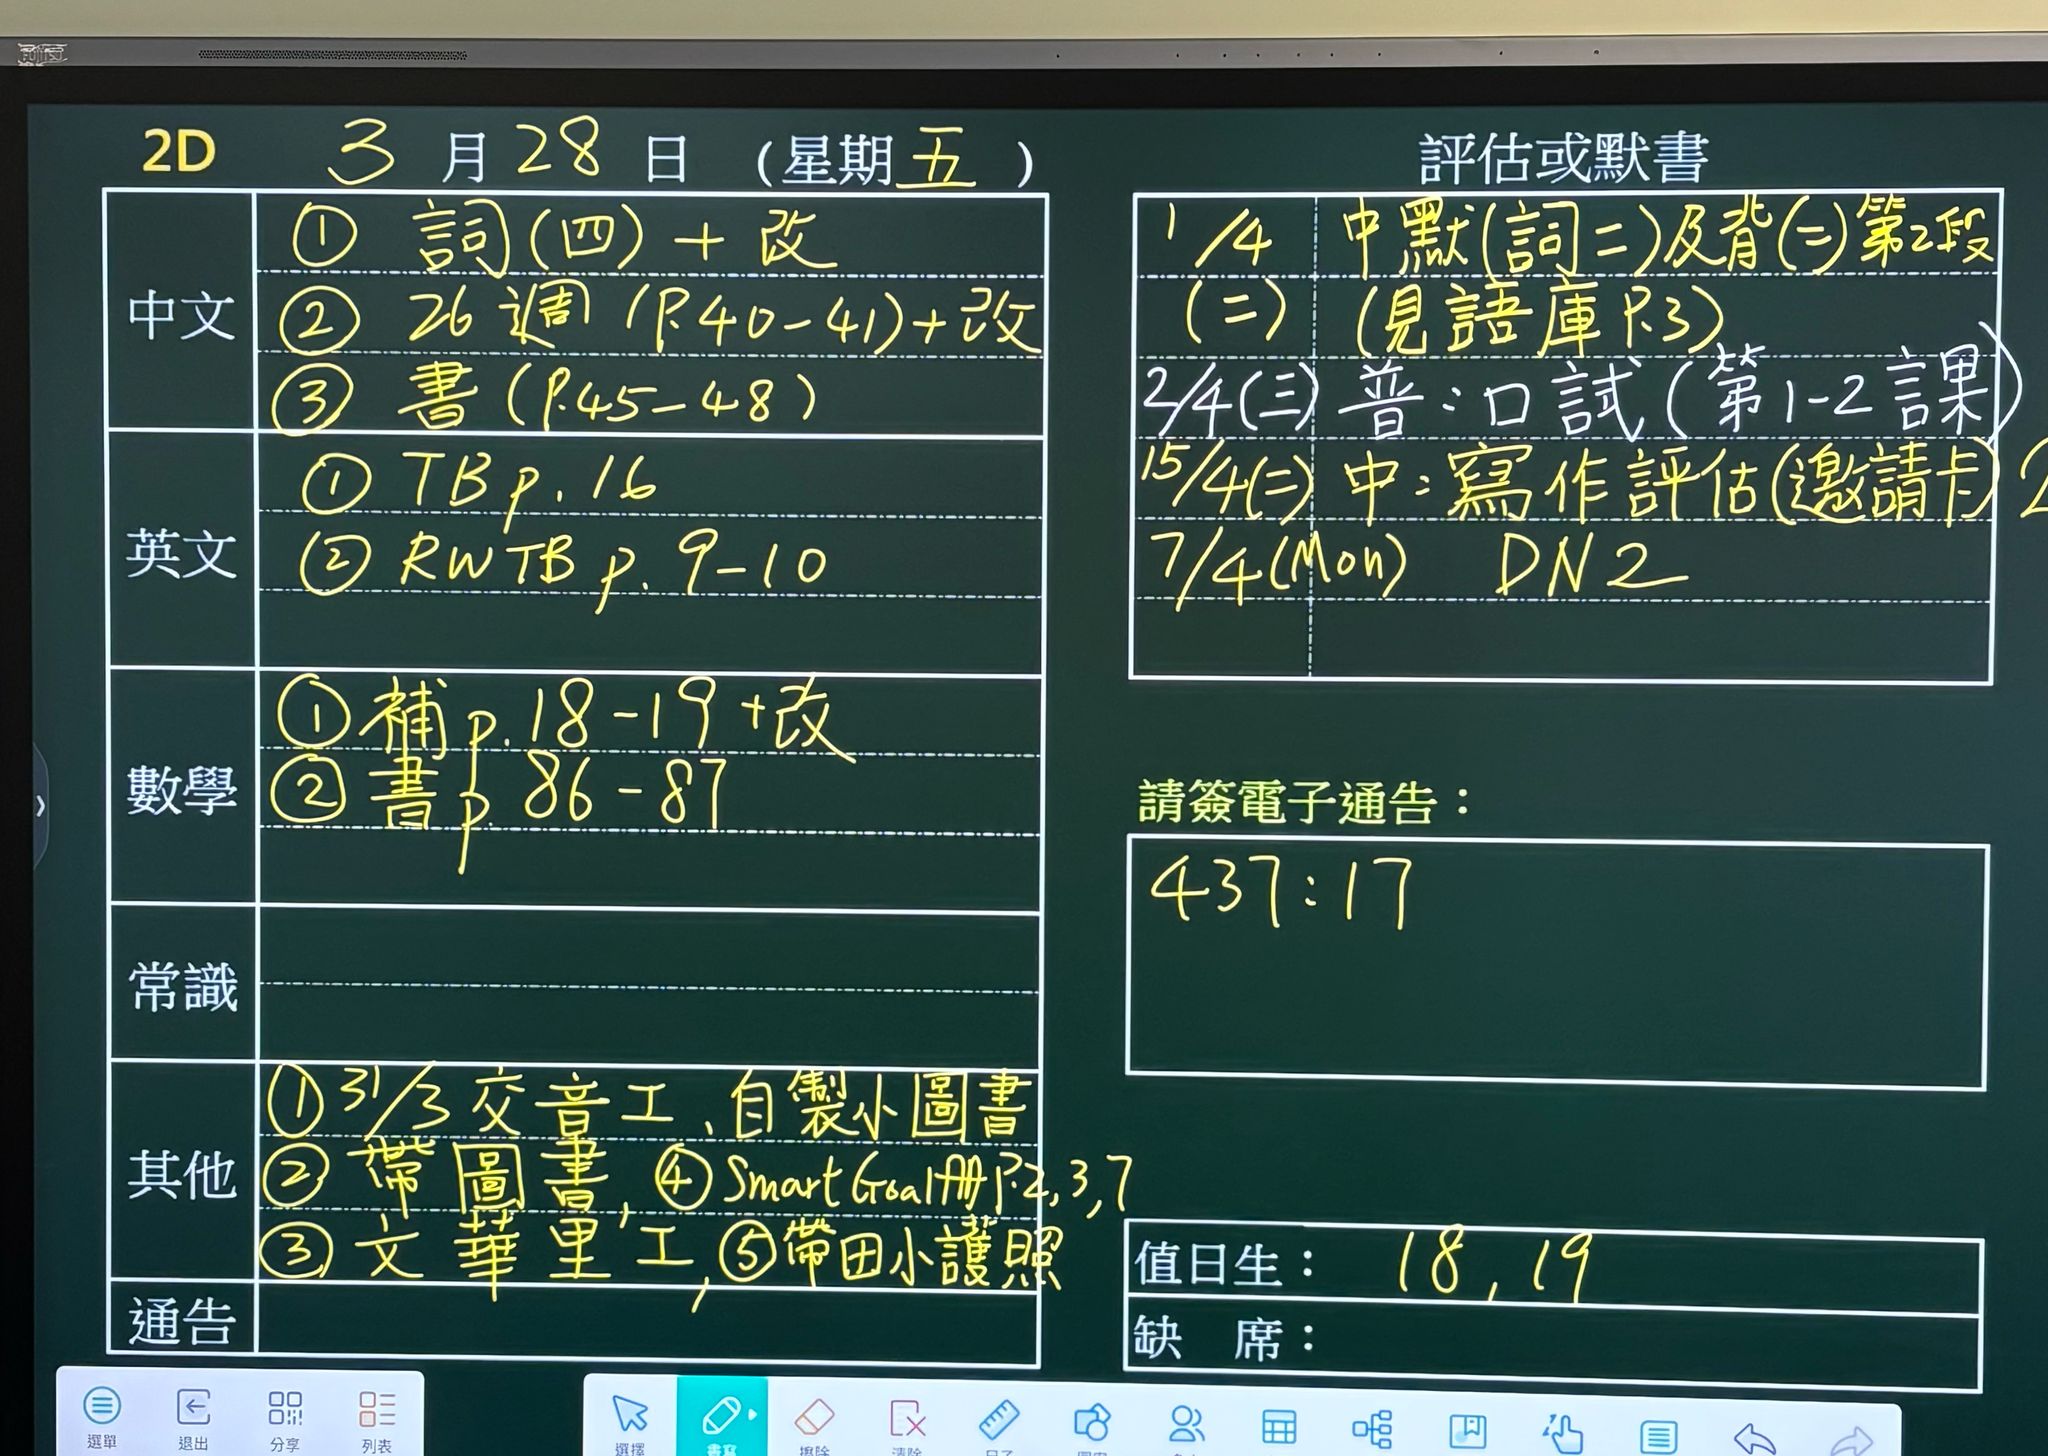 2D 3 月 28 日 (星期 五 )
中文
① 詞(四) + 改
② 26週 (P.40-41)+改
③ 書 (P.45-48)
英文
① TB p. 16
② RWTB p. 9-10
數學
① 補 p. 18-19 +改
② 書 p. 86-87
常識
其他
① 31/3 交音工、自製小圖書
② 帶圖書, ④ Smart Goal冊 P.2,3,7
③ 文華里工, ⑤帶田小護照
通告
評估或默書
1/4 中默(詞二)及背(二)第2段
(二) (見語庫 P.3)
2/4(三) 普:口試(第1-2課)
15/4(二) 中:寫作評估(邀請卡)2
7/4(Mon) DN2
請簽電子通告:
437:17
值日生: 18, 19
缺 席:
選單 退出 分享 列表
選擇 書寫 擦除 清除